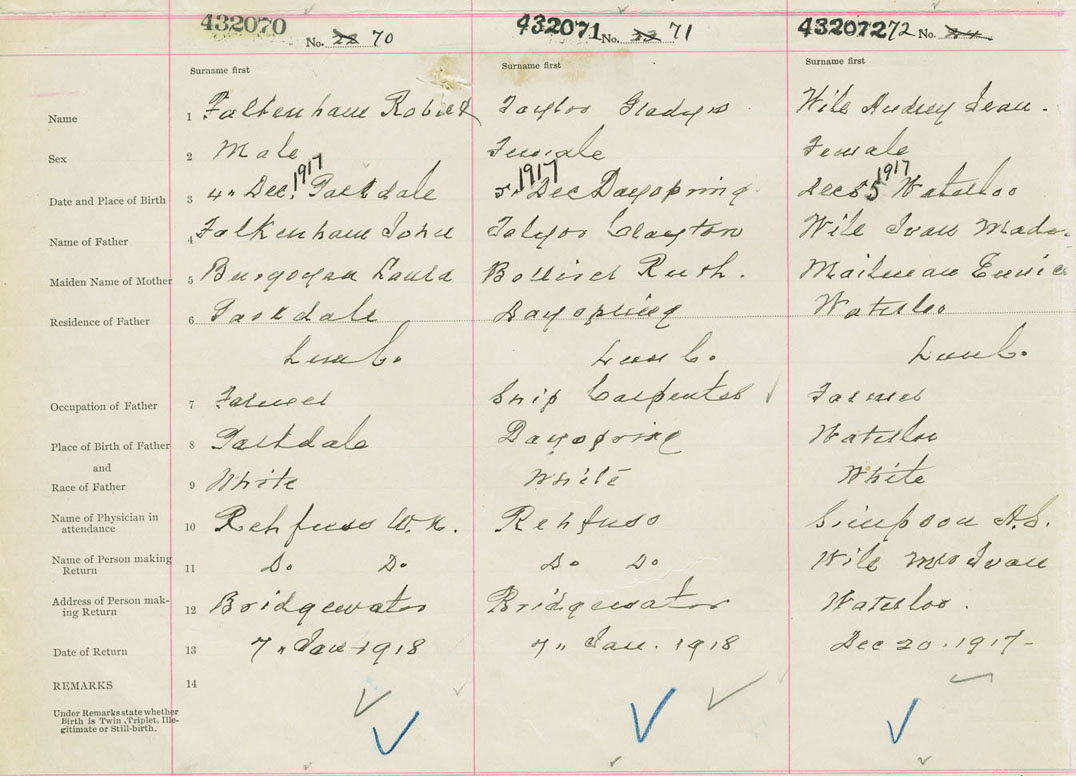 432070 No. 22 70 432071 No. 23 71 432072 72 No. 24
Surname first Surname first Surname first
Name 1 Falkenham Robert Taylor Gladys Wile Audrey Jean.
Sex 2 Male Female Female
Date and Place of Birth 3 4" Dec. 1917 Parkdale 5" 1917 Dec Dayspring Dec 5 1917 Waterloo
Name of Father 4 Falkenham John Taylor Clayton Wile Ivan
Maiden Name of Mother 5 Laura Ruth. Mailman Eunice
Residence of Father 6 Parkdale Dayspring Waterloo
Lun Co. Lun Co. Lun Co.
Occupation of Father 7 Farmer Ship Carpenter Farmer
Place of Birth of Father 8 Parkdale Dayspring Waterloo
and
Race of Father 9 White White White
Name of Physician in
attendance 10 Rehfuss W.N. Rehfuss Simpson A.S.
Name of Person making
Return 11 Do Do Do Do Wile Mrs Ivan
Address of Person mak-
ing Return 12 Bridgewater Bridgewater Waterloo.
Date of Return 13 7" Jan 1918 7" Jan. 1918 Dec 20. 1917-
REMARKS 14
Under Remarks state whether
Birth is Twin, Triplet, Ille-
gitimate or Still-birth.